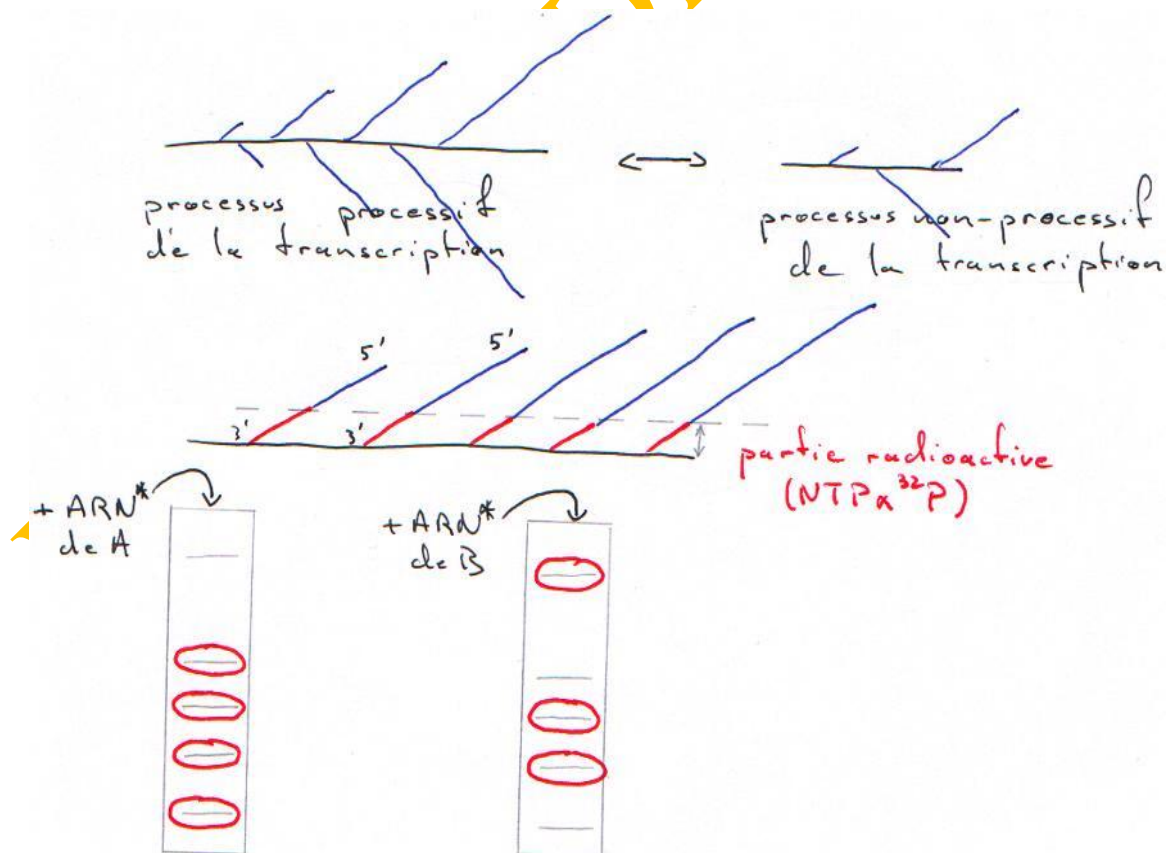 processus processif
de la transcription
processus non-processif
de la transcription
5'
5'
3'
3'
partie radioactive
(NTPα ³²P)
+ ARN*
de A
+ ARN*
de B